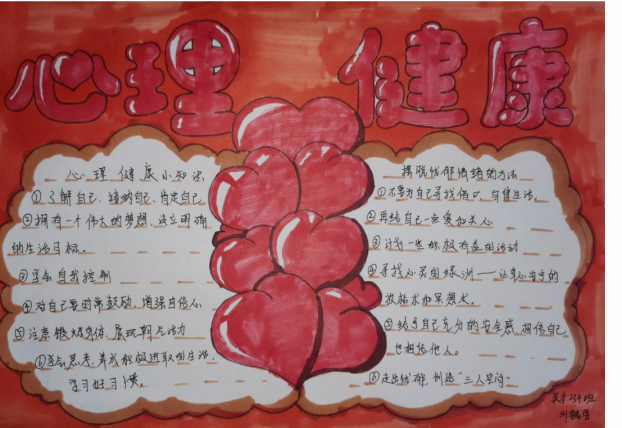 心理 健康
心理健康小知识
①了解自己、接纳自己、肯定自己
②拥有一个伟大的梦想、设立明确
的生活目标。
③学会自我控制
④对自己要时常鼓励,增强自信心
⑤注意锻炼身体,展现朝气活力
⑥学会思考,养成积极进取的生活、
学习好习惯。
摆脱忧郁情绪的方法
①不要为自己寻找借口,自健生活。
②再给自己一些爱和关心
③计划一些积极有益的活动
④寻找心灵的绿洲——让身心安宁的
放松术和冥想术。
⑤给予自己充分的安全感,相信自己
也相信他人。
⑥走出忧郁,创造“三人空间”